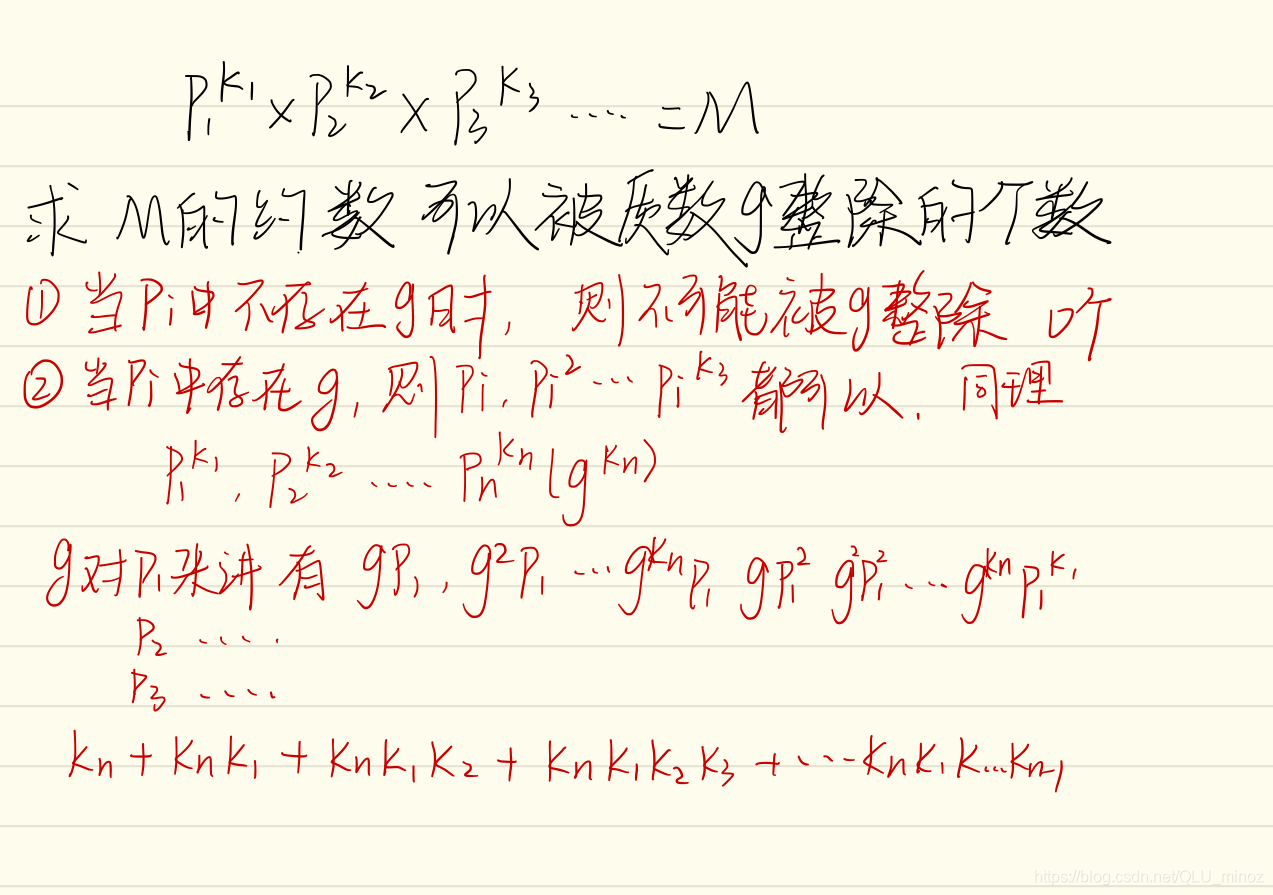 P₁^K₁ × P₂^K₂ × P₃^K₃ ‥‥ = M
求 M的约数 可以被质数g整除的个数
① 当Pi中不存在g时, 则不可能被g整除 0个
② 当Pi中存在g, 则 Pi, Pi² … Pi^K₃ 都可以. 同理
P₁^K₁, P₂^K₂ ‥‥ Pn^Kn (g^Kn)
g对P₁来讲 有 gP₁, g²P₁ … g^Kn P₁ gP₁² g²P₁² … g^Kn P₁^K₁
P₂ ‥‥
P₃ ‥‥
Kn + KnK₁ + KnK₁K₂ + KnK₁K₂K₃ + … KnK₁K…Kn-1
https://blog.csdn.net/QLU_minoz